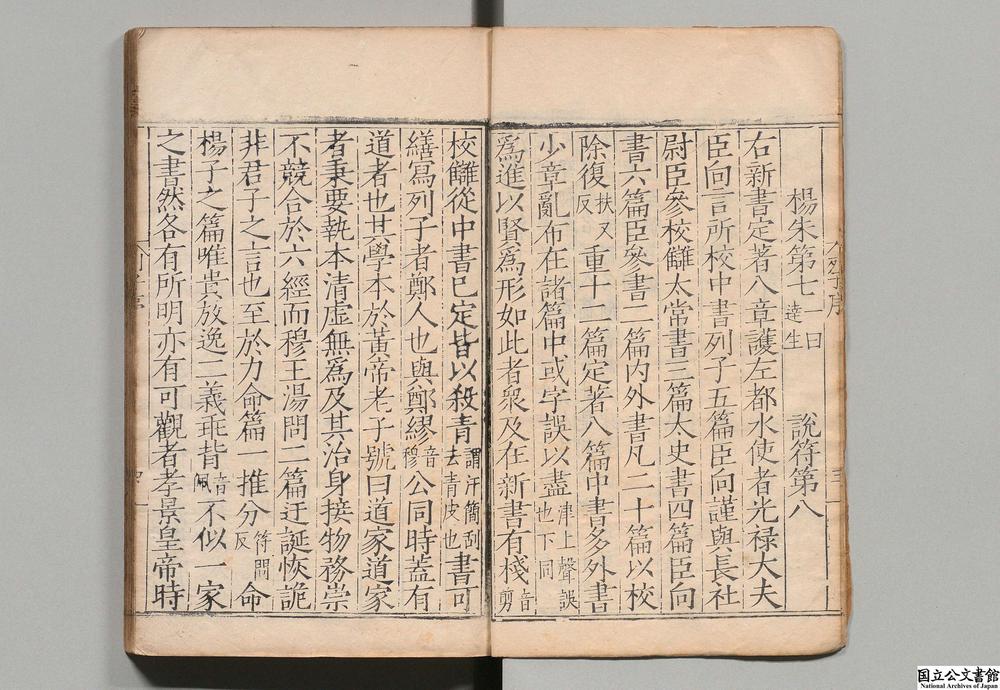 楊朱第七 一曰達生 說符第八
右新書定著八章護左都水使者光祿大夫
臣向言所校中書列子五篇臣向謹與長社
尉臣參校讎太常書三篇大史書四篇臣向
書六篇臣參書二篇內外書凡二十篇以校
除復扶又反重十二篇定著八篇中書多外書
少章亂布在諸篇中或字誤以盡津上聲誤也下同
爲進以賢爲形如此者衆及在新書有棧音剪
校讎從中書已定皆以殺青謂汗簡刮去青皮也書可
繕寫列子者鄭人也與鄭繆音穆公同時蓋有
道者也其學本於黃帝老子號曰道家道家
者秉要執本清虛無爲及其治身接物務崇
不競合於六經而穆王湯問二篇迂誕恢詭
非君子之言也至於力命篇一推分符問反命
楊子之篇唯貴放逸二義乖背音佩不似一家
之書然各有所明亦有可觀者孝景皇帝時
国立公文書館
National Archives of Japan